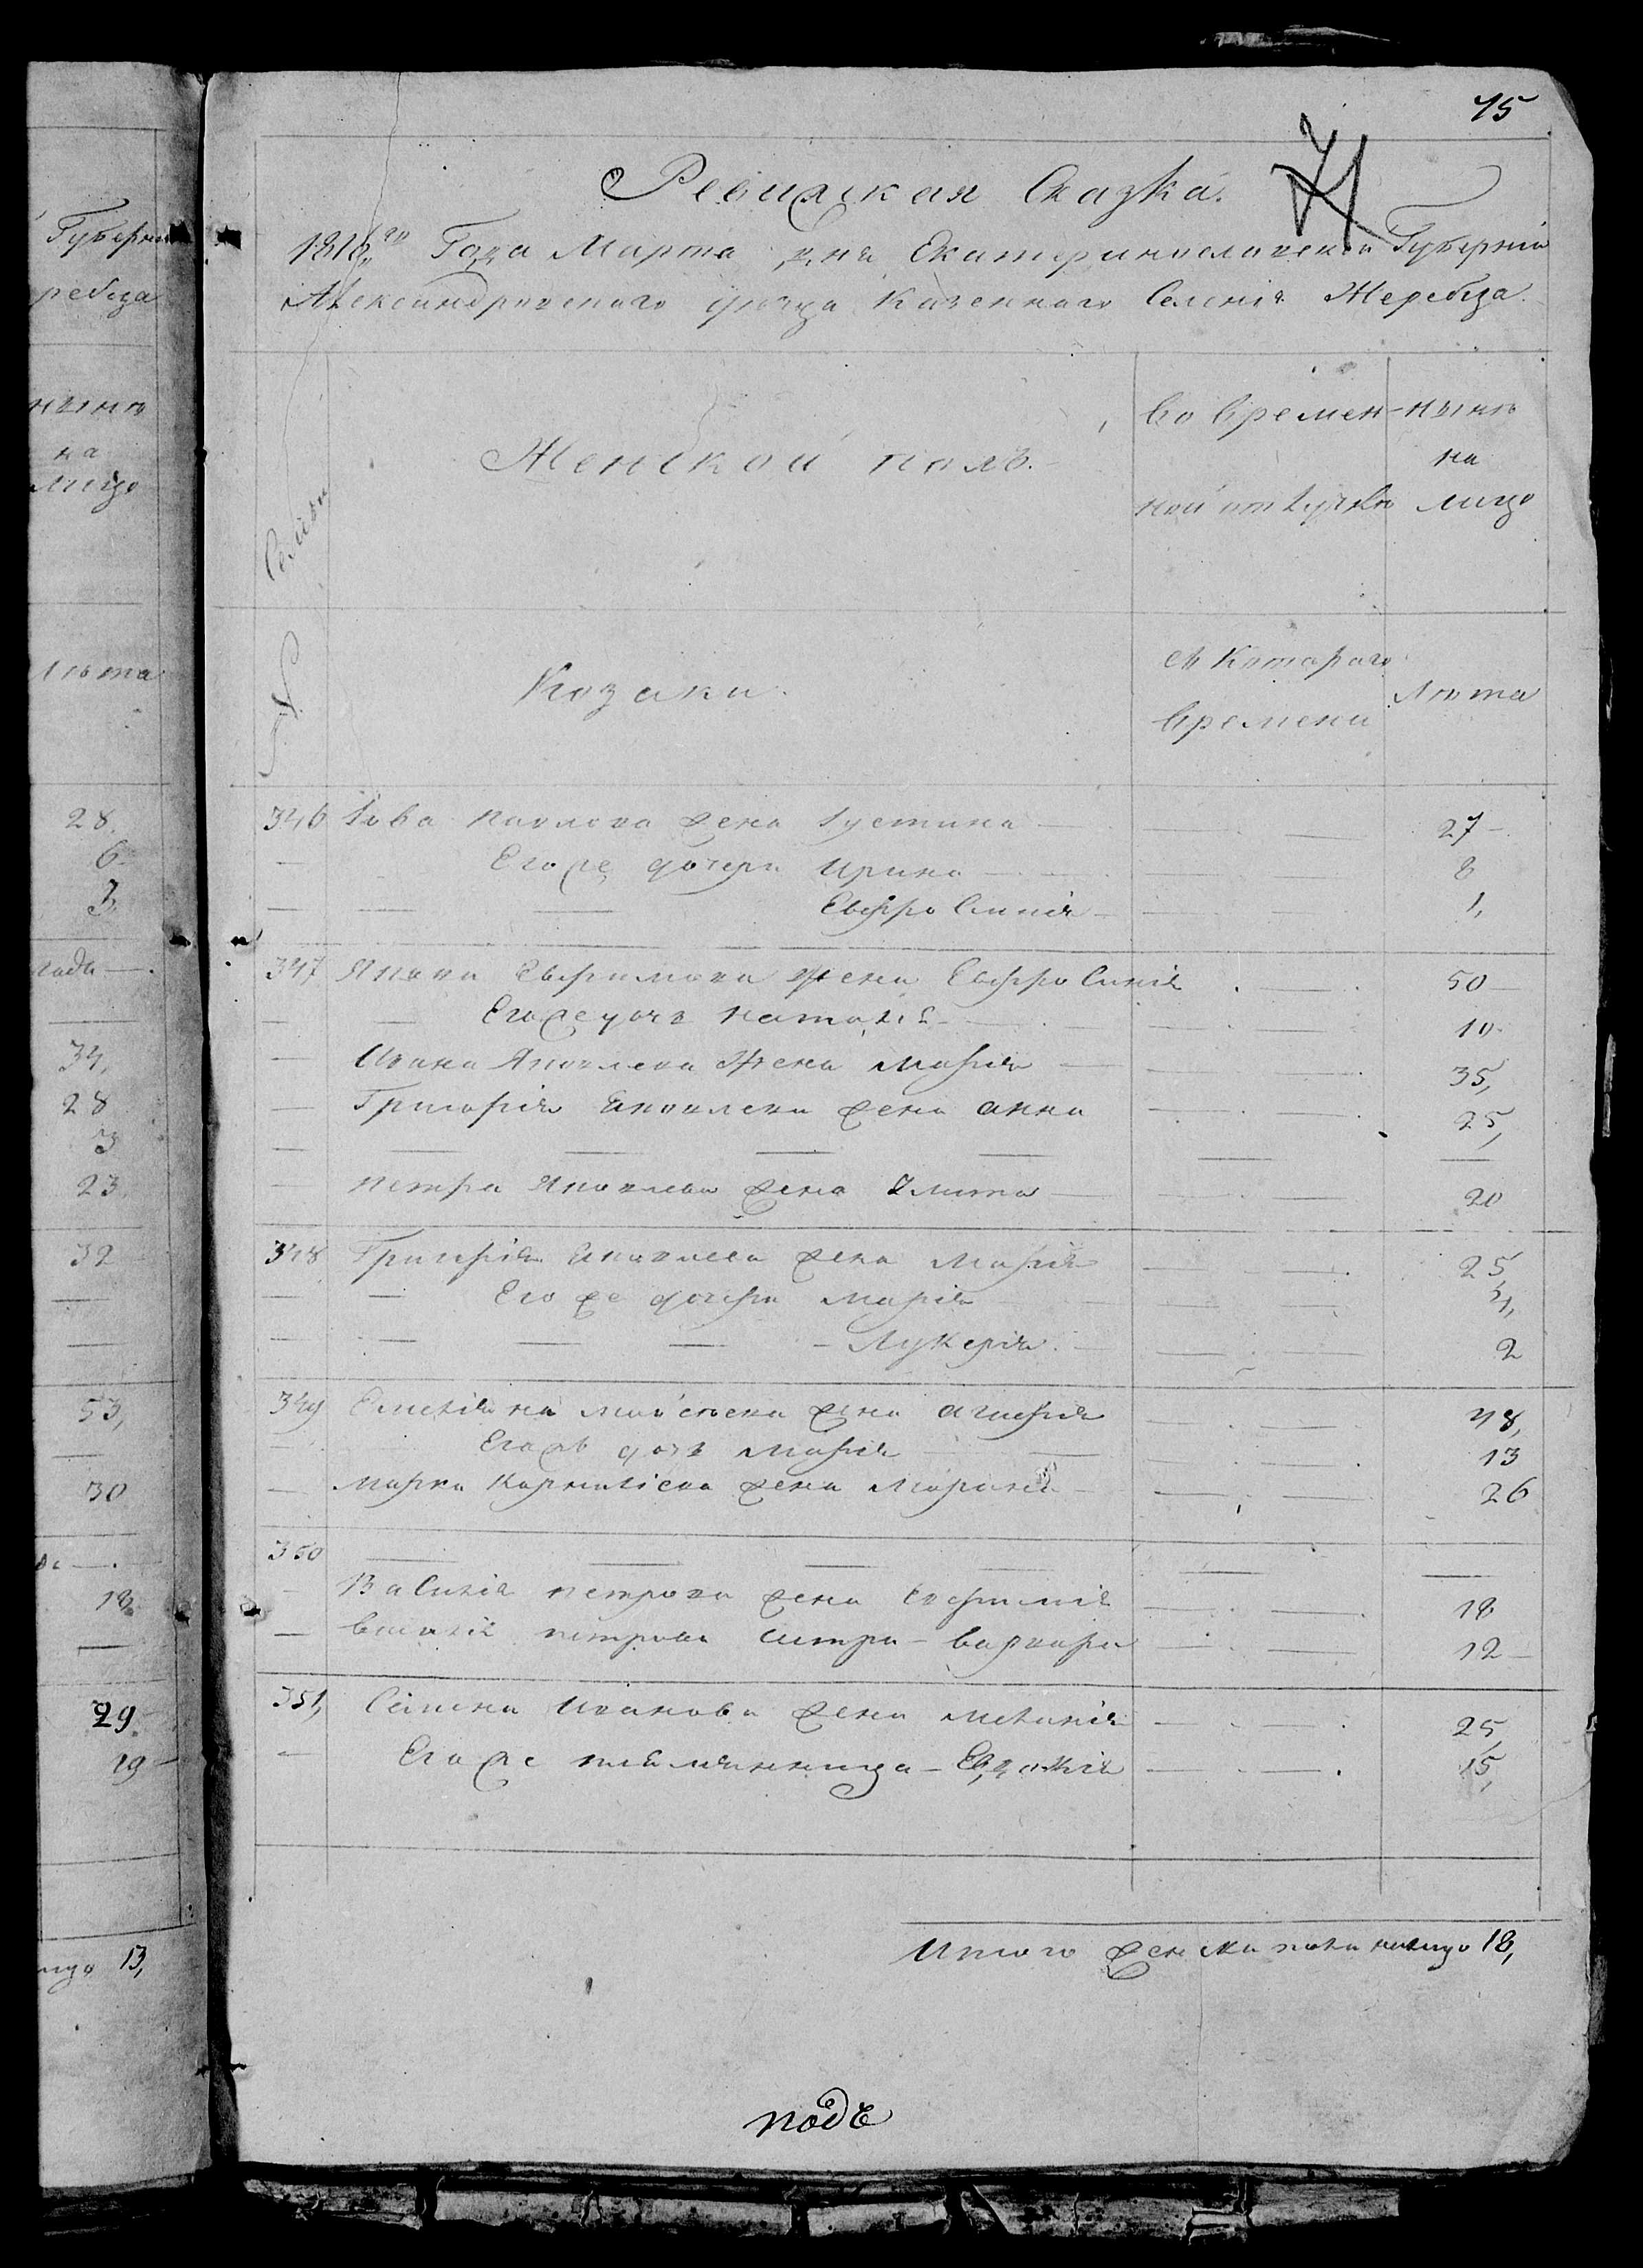 75
71
Ревизская Сказка.
1816го Года Марта дня Екатеринославской Губерніи
Александровского уѣзда Казенного Селенія Жеребца
Женской полъ.
во времен-
ной отлучке
нынѣ
на
лицо
№ Семьи
Козаки.
съ котораго
времени
лѣта
346 Іова Павлова жена Іустина — 27
Его же дочери Ирина — 8
Евфросинія — 1,
347 Якова Ефимова жена Евфросинія — 50
Его же дочь Наталія — 10
Ивана Яковлева жена Марія — 35,
Григорія Яковлева жена Анна — 25,
Петра Яковлева жена Улита — 20
348 Григорія Яковлева жена Марія — 25,
Его же дочери Марія — 4,
Лукерія — 2
349 Емеліана жена — 48,
Его же дочь Марія — 13
Марка Корниліева жена Марина — 26
350
Василія Петрова жена Евфимія — 18
Василія Петрова сестра Варвара — 12
351, Иванова жена Меланія — 25,
Его же племянница Евдокія — 15,
Итого женска пола налицо 18,
подъ
Губерн
ребца
нынѣ
на
лицо
лѣта
28.
6
3,
года —.
34,
28
3
23
32
53,
30
18
29
19
лицо 13,